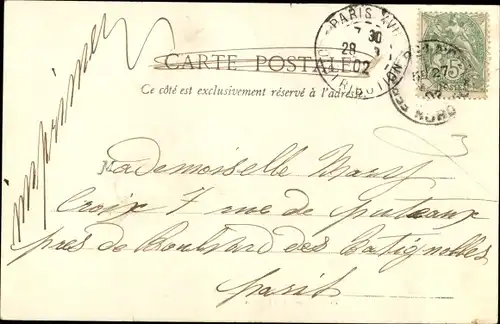 imprimer
CARTE POSTALE
Ce côté est exclusivement réservé à l'adresse
PARIS XVII
7 30
28
02
DISTRIBUTION
5
27
NORD
Mademoiselle
Croix 7 rue de puteaux
près de Boulevard des Batignolles
paris